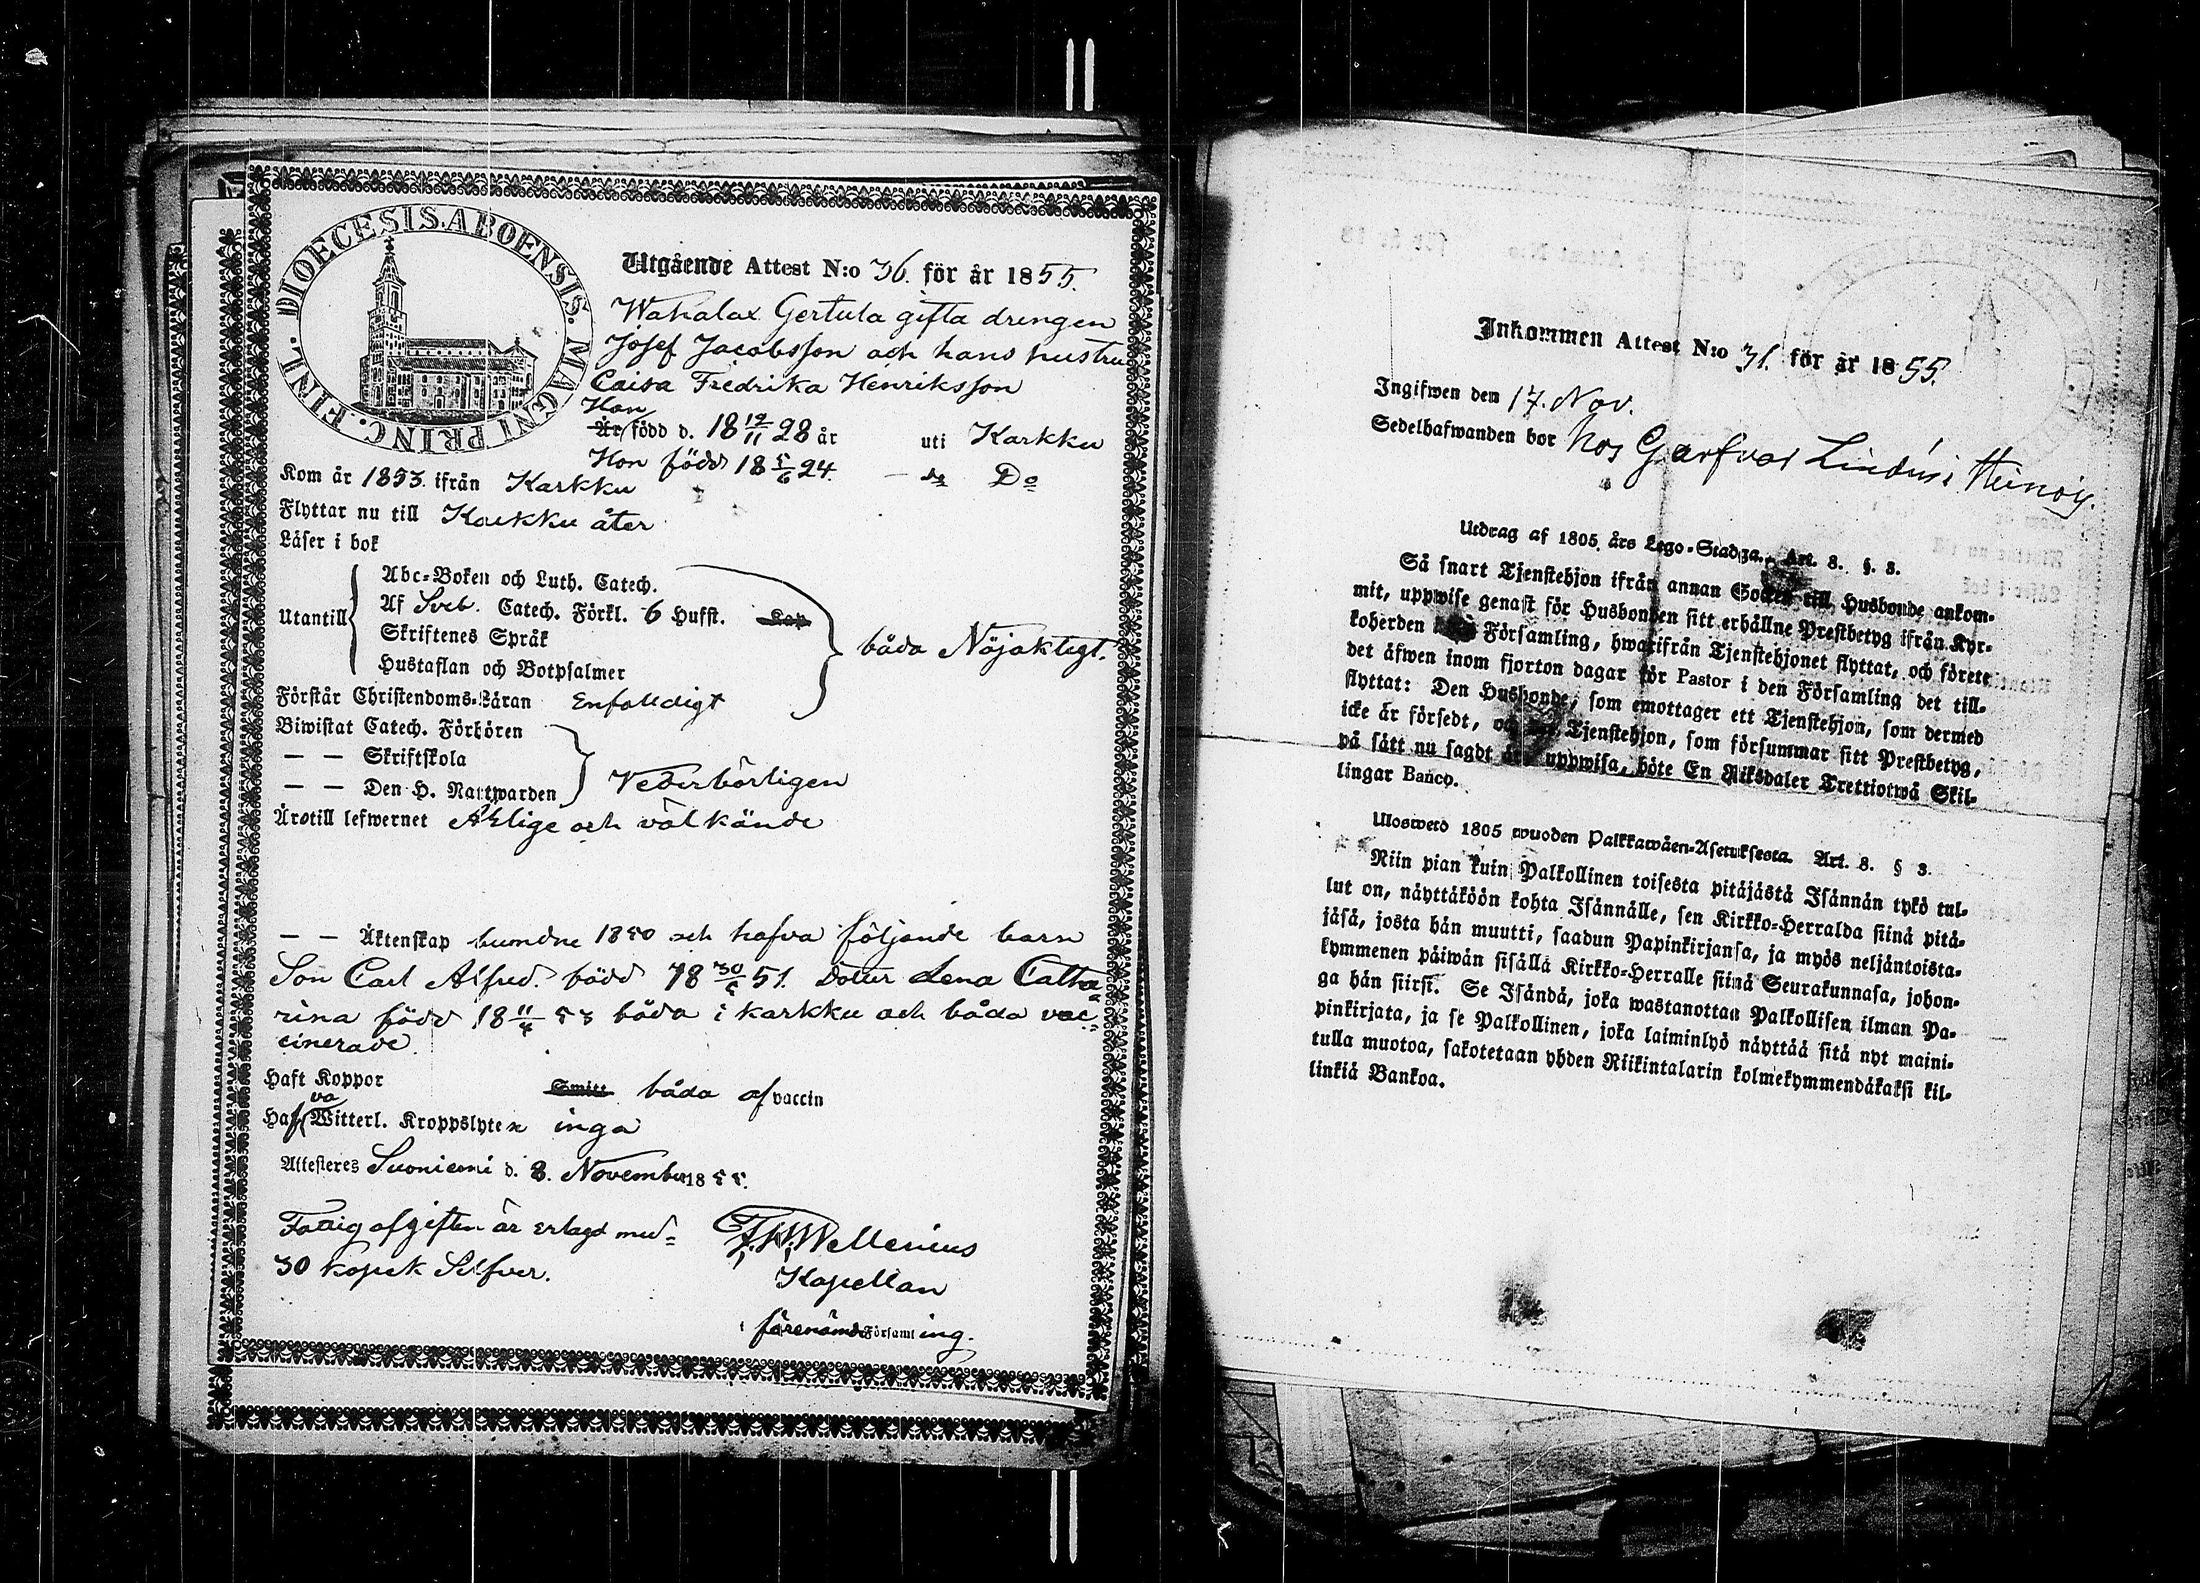 DIOECESIS. ABOENSIS. MAGNI PRINC. FINL.
Utgående Attest N:o 36. för år 1855.
Wahalax Gertula gifta drengen
Josef Jacobsson och hans hustru
Caisa Fredrika Henriksson
Han
Är född d. 18 19/11 28 år uti Karkku
Hon född 18 5/6 24. — do Do
Kom år 1853. ifrån Karkku
Flyttar nu till Karkku åter
Läser i bok
Utantill
Abc-Boken och Luth. Catech.
Af Sveb. Catech. Förkl. 6 Hufst. Kap
Skriftenes Språk
Hustaflan och Botpsalmer
båda Nöjaktigt.
Förstår Christendoms-Läran Enfalldigt
Biwistat Catech. Förhören
— — Skriftskola
— — Den H. Nattwarden
Vederbörligen
Ärotill lefwernet Ärlige och välkände
— — Äktenskap bundne 1850 och hafva följande barn
Son Carl Alfred. född 18 30/5 51. Dotter Lena Catha=
rina född 18 11/4 53 båda i Karkku och båda vac=
cinerade.
Haft Koppor Smitt båda af vaccin
va
Haf Witterl. Kroppslyten inga
Attesteres Suoniemi d. 8. November 1855.
Fattig afgiften är erlagd med=
30 kopek Silfver.
F. W. Mellenius
Kapellan
i förenämde Församl ing.
Inkommen Attest N:o 31. för år 1855.
Ingifwen den 17. Nov.
Sedelhafwanden bor hos Garfvar Lindén i Heinoy.
Utdrag af 1805. års Lego-Stadga. Art. 8. §. 3.
Så snart Tjenstehjon ifrån annan Socken till Husbonde ankom-
mit, uppwise genast för Husbonden sitt erhållne Prestbetyg ifrån Kyr-
koherden Församling, hwarifrån Tjenstehjonet flyttat, och förete
det äfwen inom fjorton dagar för Pastor i den Församling det till-
flyttat: Den Husbonde, som emottager ett Tjenstehjon, som dermed
icke är försedt, och Tjenstehjon, som försummar sitt Prestbetyg,
på sätt nu sagdt är uppwisa, böte En Riksdaler Trettiotwå Skil-
lingar Banco.
Uloswetö 1805 wuoden Palkkawäen-Asetuksesta. Art. 8. § 3.
Niin pian kuin Palkollinen toisesta pitäjästä Isännän tykö tul-
lut on, näyttäköön kohta Isännälle, sen Kirkko-Herralda siinä pitä-
jäsä, josta hän muutti, saadun Papinkirjansa, ja myös neljäntoista-
kymmenen päiwän sisällä Kirkko-Herralle siinä Seurakunnasa, johon-
ga hän siirsi. Se Isändä, joka wastanottaa Palkollisen ilman Pa-
pinkirjata, ja se Palkollinen, joka laiminlyö näyttää sitä nyt maini-
tulla muotoa, sakotetaan yhden Riikintalarin kolmekymmendäkaksi kil-
linkiä Bankoa.